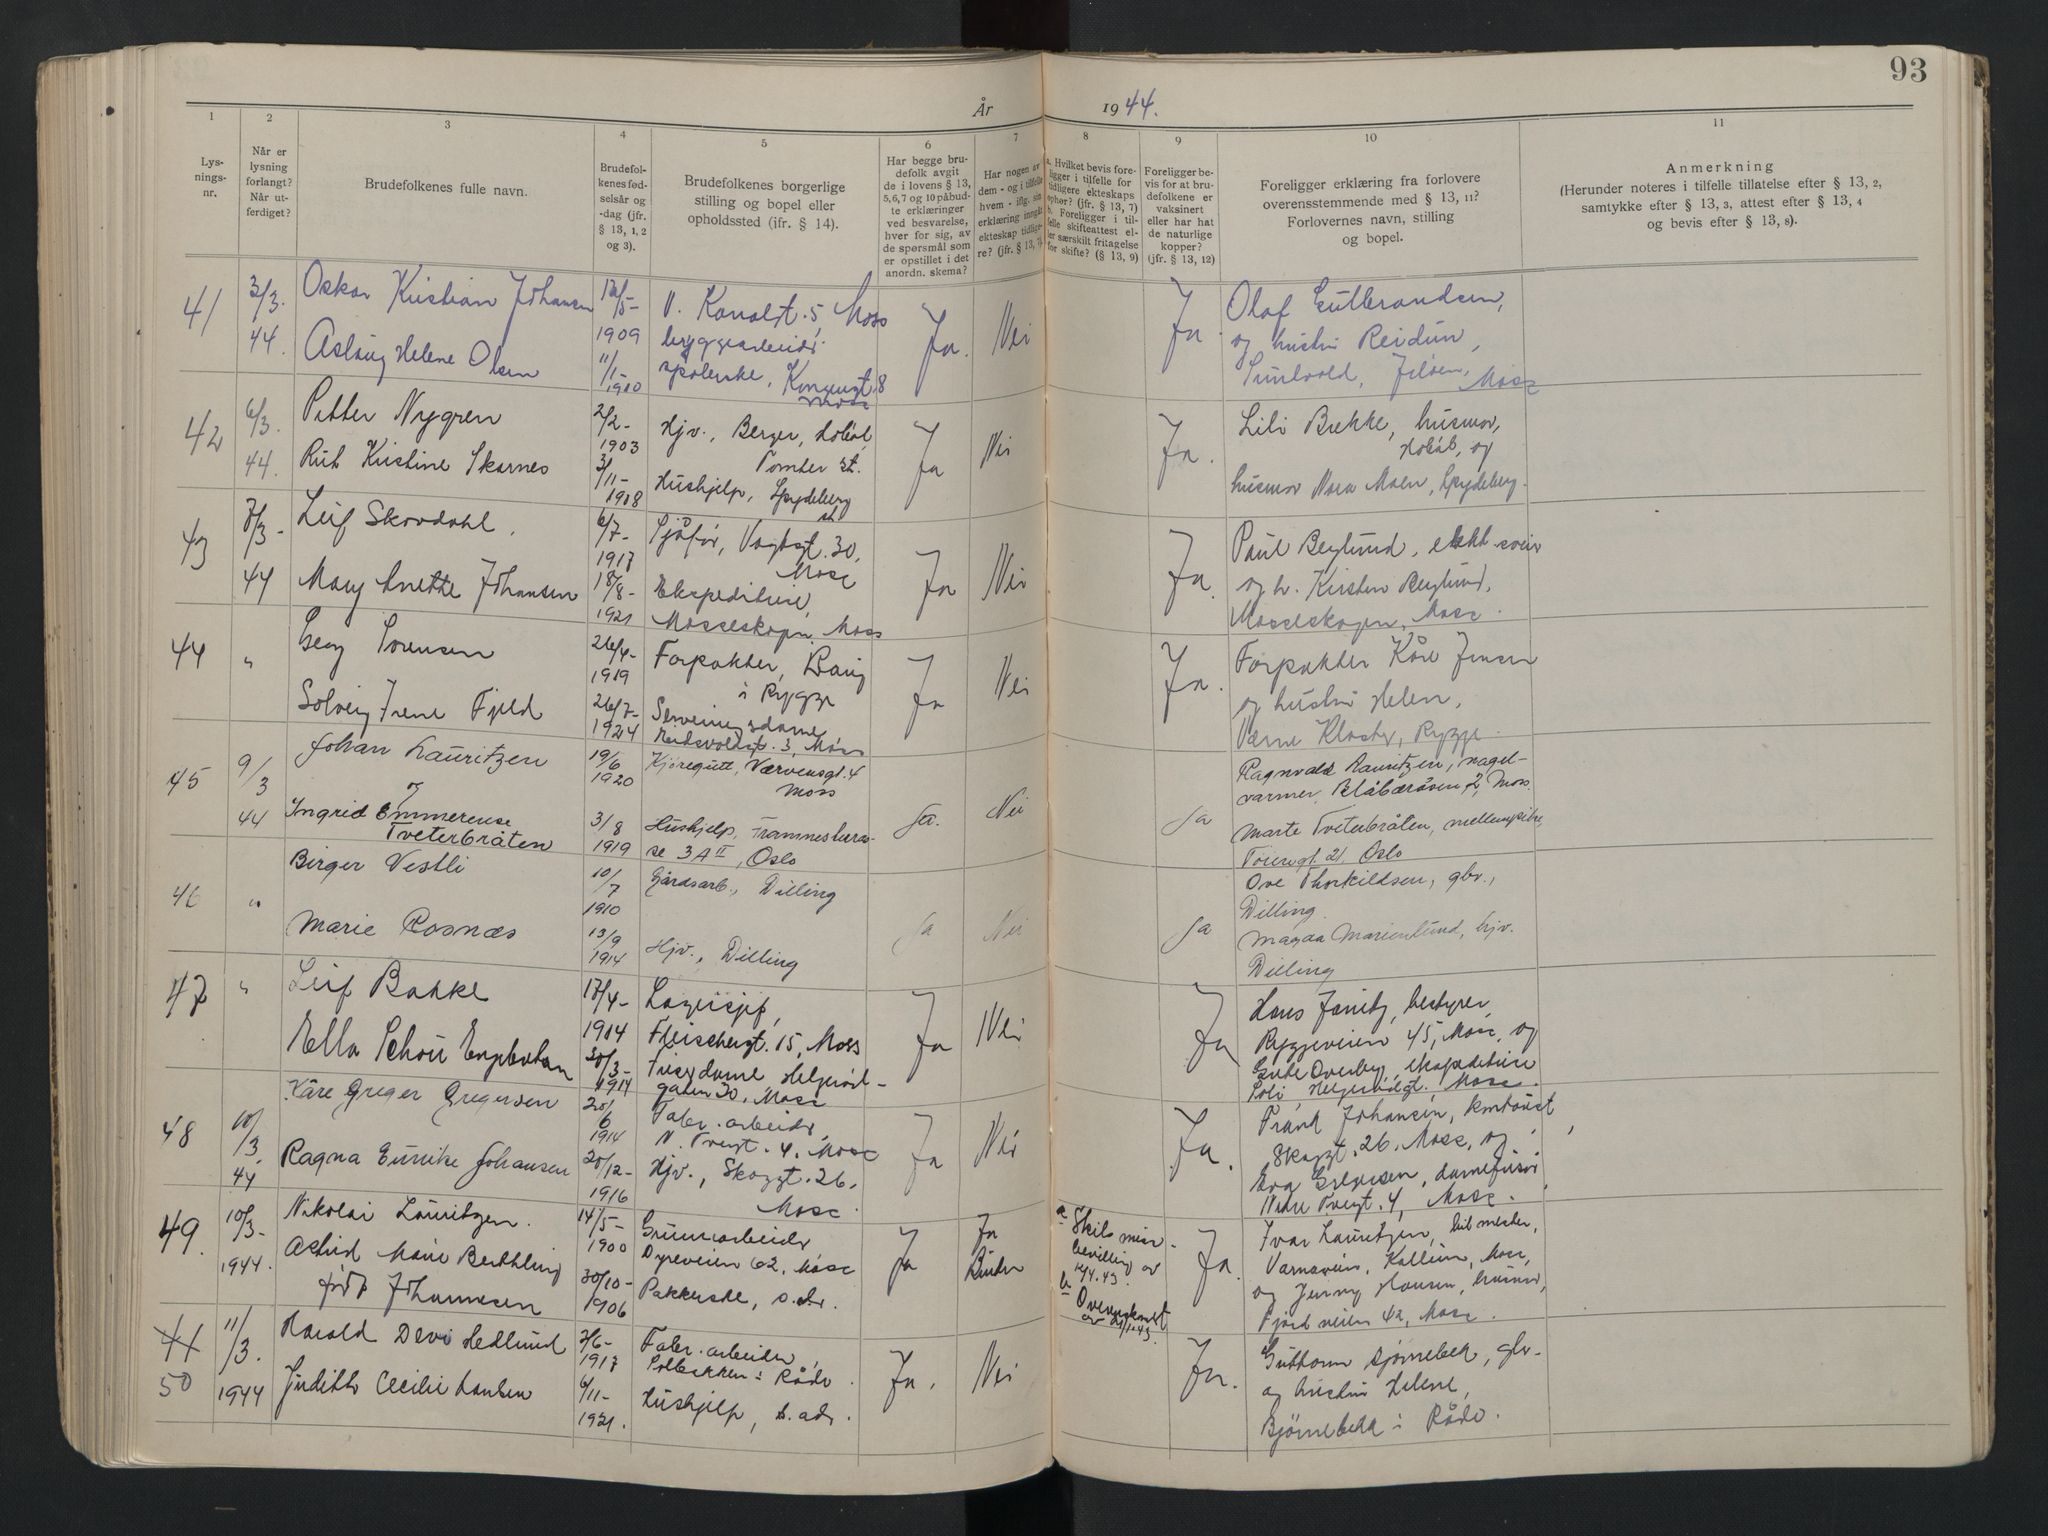 93
År 1944.
1
2
3
4
5
6
7
8
9
10
11
Lys-
nings-
nr.
Når er
lysning
forlangt?
Når ut-
ferdiget?
Brudefolkenes fulle navn.
Brudefol-
kenes fød-
selsår og
-dag (jfr.
§ 13, 1, 2
og 3).
Brudefolkenes borgerlige
stilling og bopel eller
opholdssted (ifr. § 14).
Har begge bru-
defolk avgit
de i lovens § 13,
5, 6, 7 og 10 påbud-
te erklæringer
ved besvarelse,
hver for sig, av
de spørsmål som
er opstillet i det
anordn. skema?
Har nogen av
dem - og i tilfelle
hvem - iflg. sin
erklæring inngått
ekteskap tidlige-
re? (jfr. § 13, 7).
a. Hvilket bevis fore-
ligger i tilfelle for
tidligere ekteskaps
ophør? (jfr. § 13, 7)
b. Foreligger i til-
felle skifteattest el-
ler særskilt fritagelse
for skifte? (§ 13, 9)
Foreligger be-
vis for at bru-
defolkene er
vaksinert
eller har hat
de naturlige
kopper?
(jfr. § 13, 12)
Foreligger erklæring fra forlovere
overensstemmende med § 13, 11?
Forlovernes navn, stilling
og bopel.
Anmerkning
(Herunder noteres i tilfelle tillatelse efter § 13, 2,
samtykke efter § 13, 3, attest efter § 13, 4
og bevis efter § 13, 8).
41
3/3.
44.
Oskar Kristian Johansen
Aslaug Helene Olsen
12/5-
1909
11/1-
1910
V. Kanalgt. 5, Moss
bryggearbeider
spolerske, Kongensgt. 8
Moss
Ja.
Nei
Ja
Olaf Gulbrandsen,
og hustru Reidun,
Jeløen, Moss
42
6/3.
44.
Petter Nygren
Rut Kristine Skarnes
2/2-
1903
3/11-
1918
Hjv., Berger, Hobøl
Tomter st.
Hushjelp, Spydeberg
st
Ja
Nei
Ja.
Lili Brekke, husmor,
Hobøl, og
husmor Nora Moen, Spydeberg.
43
7/3-
44
Leif Skovdahl.
Mary Anette Johansen
6/7-
1917
18/8-
1921
Sjåfør, Vogtsgt. 30,
Moss
Ekspeditrise,
Mosseskogen, Moss
Ja
Nei
Ja.
Paul Berglund, elekt. sveis
og h. Kirsten Berglund,
Mosseskogen, Moss.
44
"
Georg Sørensen
Solveig Irene Fjeld
26/4-
1919
26/7-
1924
Forpakter,
i Rygge
Serveringsdame
Eidsvoldsgt. 3, Moss
Ja
Nei
Ja.
Forpakter Kåre Jensen
og hustru Helen,
Værne Kloster, Rygge.
45
9/3
44
Johan Lauritzen
og
Ingrid Emmerense
Tveterbråten
19/6
1920
3/8
1919
Kjøregutt, Værvensgt. 4
Moss
Hushjelp, Framnesterras-
se 3A II, Oslo
Ja.
Nei
Ja
Ragnvald Lauritzen, nagel-
varmer, Blåbæråsen 2, Moss.
Marte Tveterbråten,
Tøiengt. 21, Oslo
46
"
Birger Vestli
Marie Rosnæs
10/7
1910
13/9
1914
Gårdsarb., Dilling
Hjv., Dilling
Ja
Nei
Ja
Ove Thorkildsen, gbr.,
Dilling.
Magda Marienlund, hjv.
Dilling
47
"
Leif Bakke
Ella Schou
17/4-
1914
30/3-
1914
Lagersjef,
Fleischersgt. 15, Moss
Frisørdame, Helgerød-
gaten 30, Moss
Ja
Nei
Ja
Hans bestyrer,
Ryggeveien 45, Moss, og
Grete Overby, ekspeditrise
Soli, Helgerødgt., Moss.
48
10/3.
44
Kåre Greger Gregersen
Ragna Eunike Johansen
20/6
1914
20/12-
1916
Fabr. arbeider,
N. Torvgt. 4, Moss
Hjv., Skoggt. 26,
Moss.
Ja
Nei
Ja.
Frank Johansen, kontorist,
Skoggt. 26, Moss, og
Eva Gregersen, damefrisør
Nedre Torvgt. 4, Moss.
49.
10/3-
1944.
Nikolai Lauritzen.
Astrid Marie Berthling
født Johannesen
14/5-
1900
30/10-
1906
Grunnarbeider
Dyreveien 62, Moss
Pakkerske, s. adr.
Ja
Ja
Bruden
a Skilsmisse-
bevilling av
b
Overenskomst
Ja.
Ivar Lauritzen,
Varnaveien, Kallum, Moss,
og Jenny Hansen, husmor,
Fjordveien 42, Moss.
41
50
11/3.
1944
Harald Devi Hedlund
Judith Cecilie
2/6-
1917
6/11-
1921.
Fabr. arbeider,
Solbakken i Råde.
Hushjelp, s. adr.
Ja.
Nei
Ja.
Guttorm Bjørnebekk, gbr.
og hustru Helene,
Bjørnebekk i Råde.